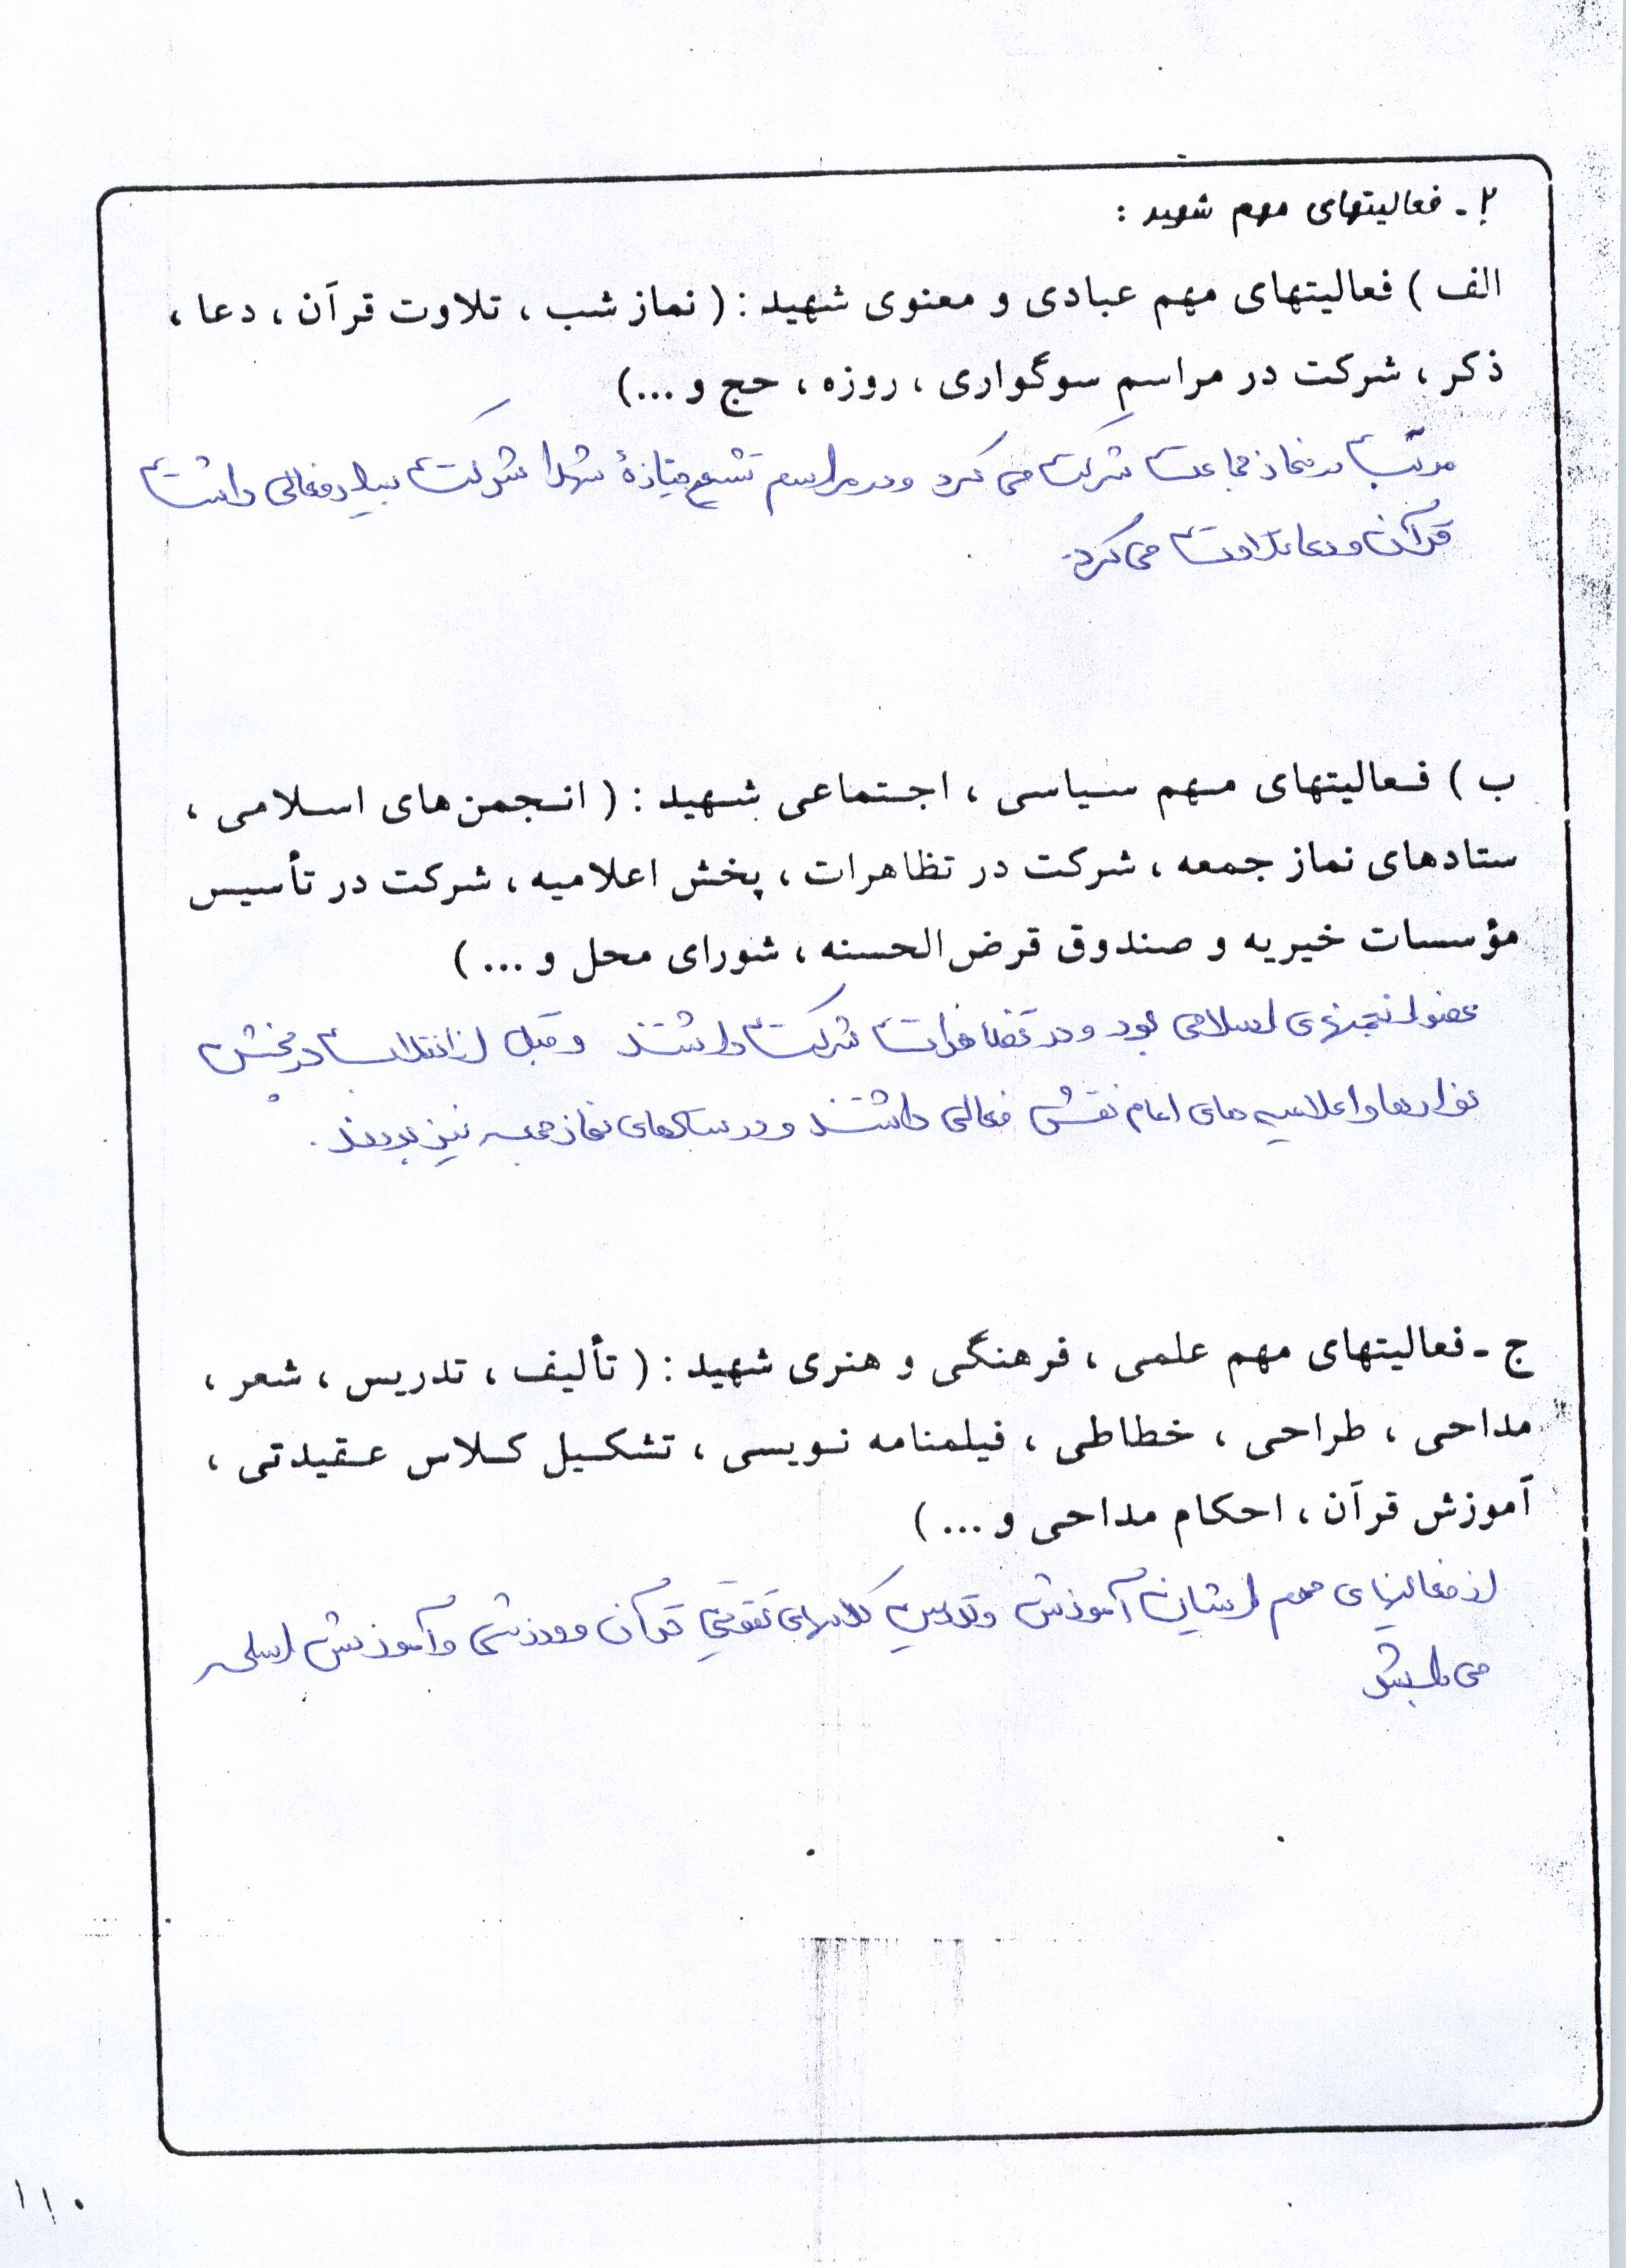 ۲ـ فعالیتهای مهم شهید :
الف ) فعالیتهای مهم عبادی و معنوی شهید : ( نماز شب ، تلاوت قرآن ، دعا ،
ذکر ، شرکت در مراسم سوگواری ، روزه ، حج و ...)
مرتب در نماز جماعت شرکت می کرد و در مراسم تشیع جنازهٔ شهدا شرکت بسیار فعالی داشت
قرآن و دعا تلاوت می کرد.
ب ) فعالیتهای مهم سیاسی ، اجتماعی شهید : ( انجمن‌های اسلامی ،
ستادهای نماز جمعه ، شرکت در تظاهرات ، پخش اعلامیه ، شرکت در تأسیس
مؤسسات خیریه و صندوق قرض‌الحسنه ، شورای محل و ... )
عضو انجمنهای اسلامی بود و در تظاهرات شرکت داشتند و قبل از انقلاب در پخش
نوارها و اعلامیه های امام نقش فعالی داشتند و در ستادهای نماز جمعه نیز بودند .
ج ـ فعالیتهای مهم علمی ، فرهنگی و هنری شهید : ( تألیف ، تدریس ، شعر ،
مداحی ، طراحی ، خطاطی ، فیلمنامه نویسی ، تشکیل کلاس عقیدتی ،
آموزش قرآن ، احکام مداحی و ... )
از فعالیتهای مهم ایشان آموزش و تدریس کلاسهای تقویتی قرآن و ورزشی و آموزش اسلحه
می باشد
۱۱۰